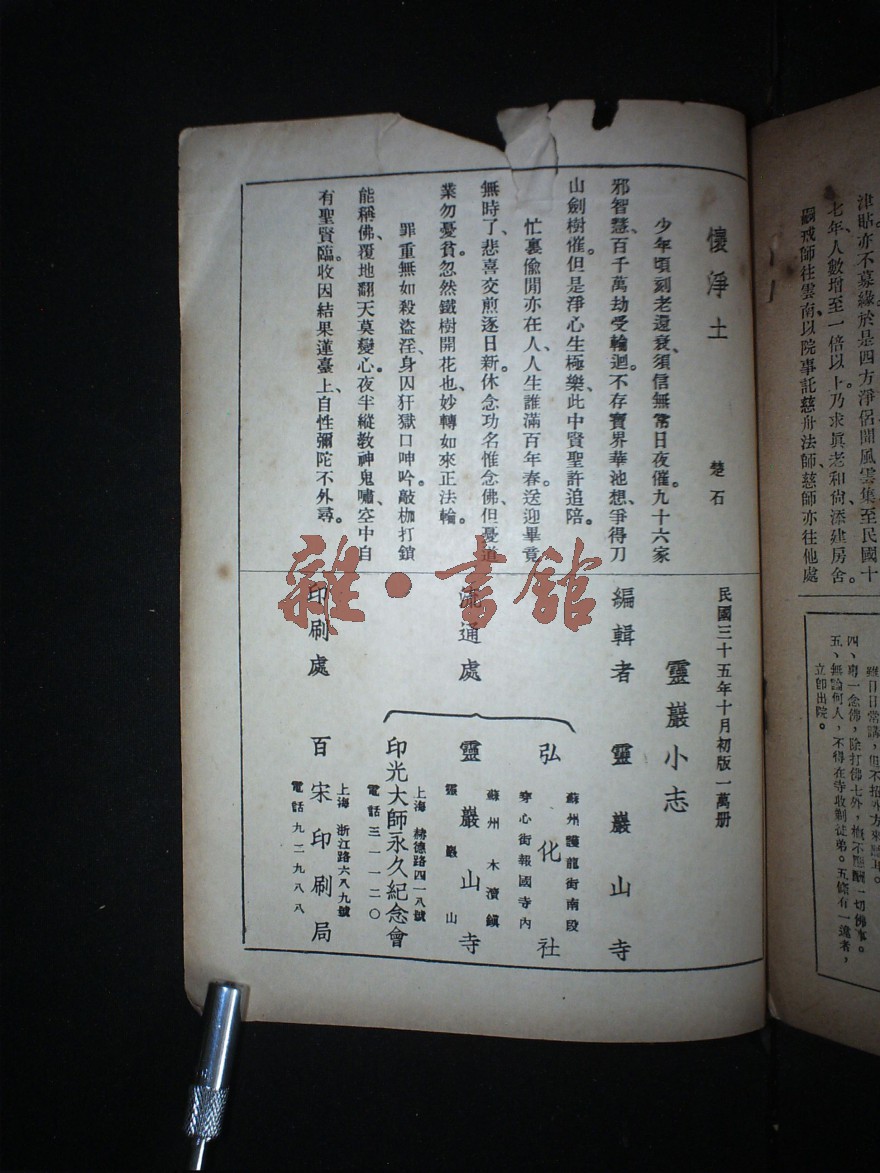 津貼亦不募緣、於是四方淨侶聞風雲集、至民國十
七年、人數增至一倍以上、乃求眞老和尙添建房舍。
嗣戒師往雲南、以院事託慈舟法師、慈師亦往他處
四、專一念佛，除打佛七外，概不應酬一切佛事。
五、無論何人，不得在寺收剃徒弟。五條有一違者，
立卽出院。
懷淨土
楚石
少年頃刻老還衰、須信無常日夜催。九十六家
邪智慧、百千萬劫受輪迴。不存寶界華池想、爭得刀
山劍樹摧。但是淨心生極樂、此中賢聖許追陪。
忙裏偸閒亦在人、人生誰滿百年春。送迎畢竟
無時了、悲喜交煎逐日新。休念功名惟念佛、但憂道
業勿憂貧。忽然鐵樹開花也、妙轉如來正法輪。
罪重無如殺盜淫、身囚犴獄口呻吟。敲枷打鎖
能稱佛、覆地翻天莫變心。夜半縱教神鬼嘯、空中自
有聖賢臨。收因結果蓮臺上、自性彌陀不外尋。
民國三十五年十月初版一萬册
靈巖小志
編輯者 靈巖山寺
流通處
蘇州護龍街南段
弘化社
穿心街報國寺內
蘇州木瀆鎭
靈巖山寺
靈巖山
上海 赫德路四一八號
印光大師永久紀念會
電話三一一二〇
印刷處 百宋印刷局
上海 浙江路六八九號
電話九二九八八
雜·書館